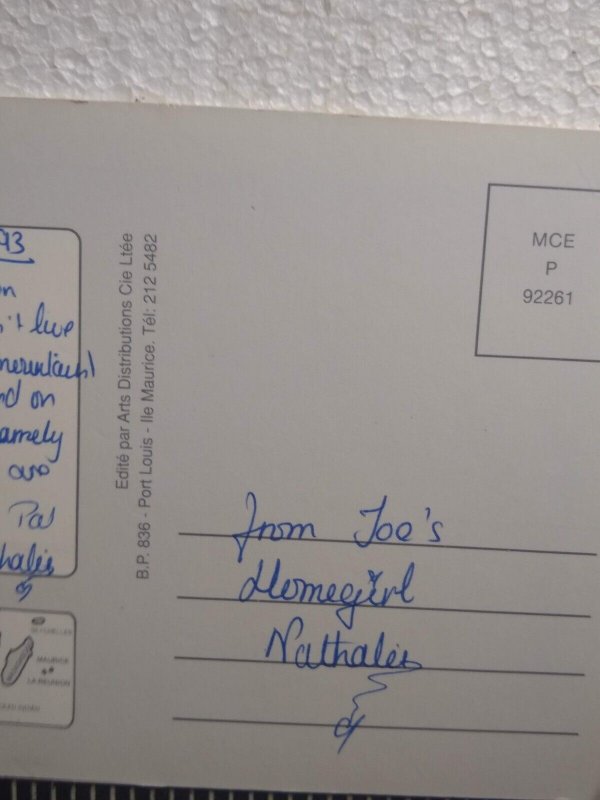 93
live
nd on
amely
Pal
Edité par Arts Distributions Cie Ltée
B.P. 836 - Port Louis - Ile Maurice. Tél: 212 5482
MCE
P
92261
from Joe's
Homegirl
Nathalie
SEYCHELLES
MAURICE
LA REUNION